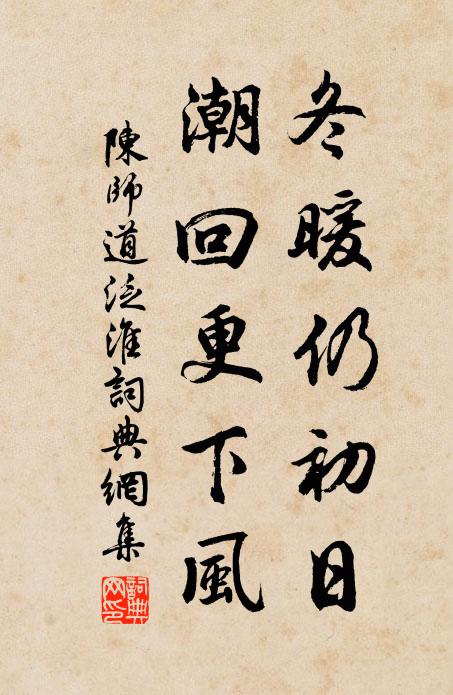 冬暖仍初日
潮回更下風
陳師道泛淮詞典網集
詞典網印